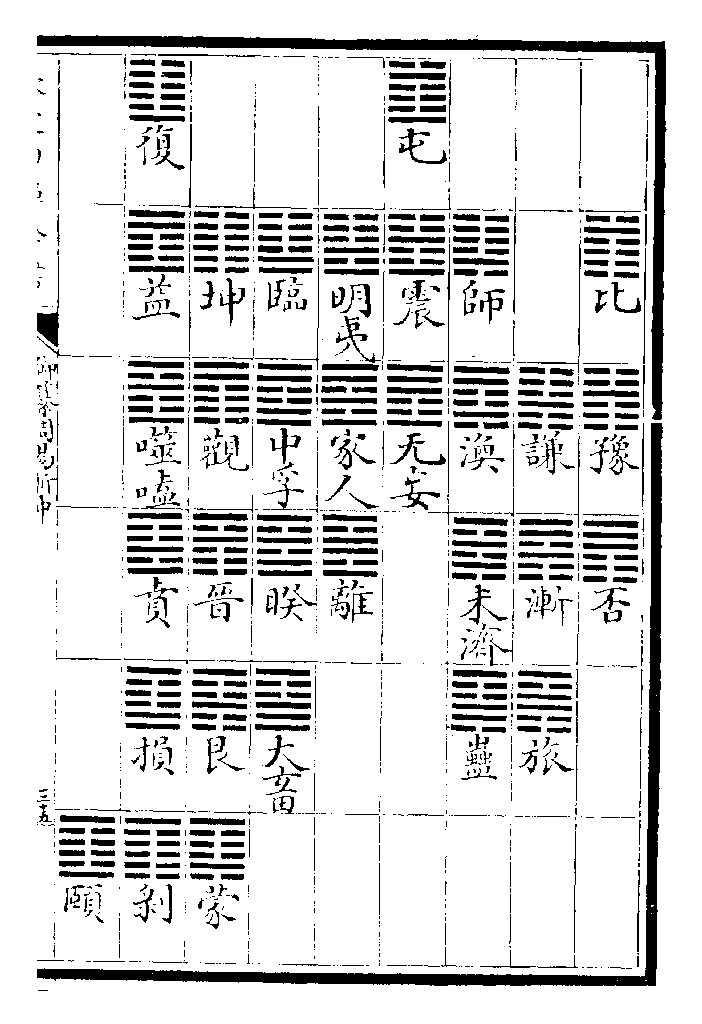 比
豫
否
謙
漸
旅
師
渙
未濟
蠱
屯
震
无妄
明夷
家人
離
臨
中孚
睽
大畜
坤
觀
晉
艮
蒙
復
益
噬嗑
賁
損
剥
頤
御纂周易折中
三五